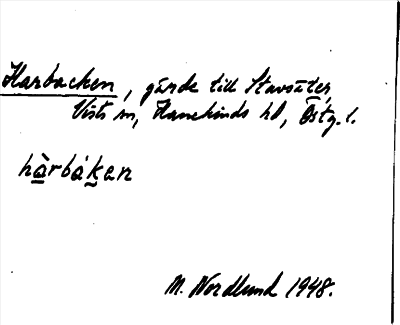 Harbacken, gärde till Stavsäter,
Vists sn, Hanekinds hd, Östg. l.
hàrbákan
M. Nordlund 1948.